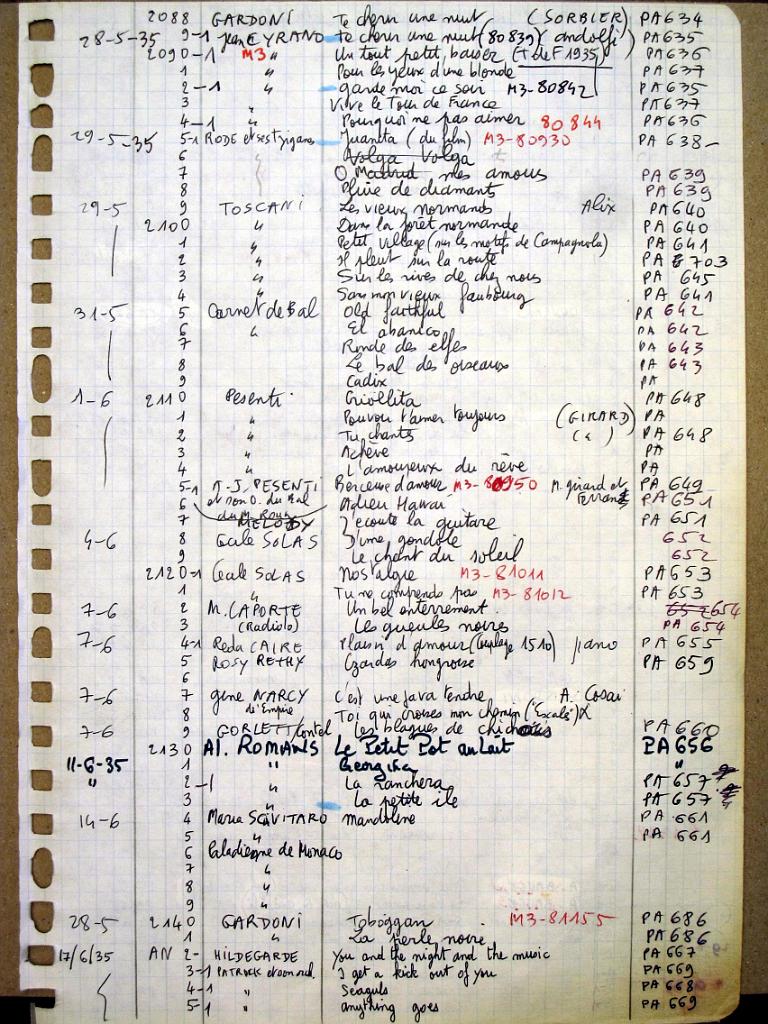 2088 GARDONI Te chérir une nuit (SORBIER) PA 634
28-5-35 9-1 Jean CYRANO Te chérir une nuit (80839) andolfi PA 635
2090-1 M3 " Un tout petit baiser (T de F 1935) PA 636
1 " Pour les yeux d'une blonde PA 637
2-1 " garde moi ce soir M3-80842 PA 635
3 Vive le Tour de France PA 637
4-1 " Pourquoi ne pas aimer 80844 PA 636
29-5-35 5-1 RODE et ses Tziganes Juanita (du film) M3-80930 PA 638-
6 " Volga Volga
7 O Madrid mes amours PA 639
8 Pluie de diamants PA 639
29-5 9 TOSCANI Les vieux normands Alix PA 640
2100 " Dans la forêt normande PA 640
1 " Petit village (sur les motifs de Campagnola) PA 641
2 " Il pleut sur la route PA 703
3 " Sur les rives de chez nous PA 645
4 " Sans mon vieux faubourg PA 641
31-5 5 Carnet de Bal Old faithful PA 642
6 " El abanico PA 642
7 Ronde des elfes PA 643
8 Le bal des oiseaux PA 643
9 Cadix PA
1-6 2110 Pesenti Criollita PA 648
1 " Pouvoir t'aimer toujours (GIRARD) PA
2 " Tu chantes (") PA 648
3 " Achève PA
4 " L'amoureux du rêve PA
5-1 R.J. PESENTI Berceuse d'amour M3-80950 M. girard et Ferrant PA 649
6 et son O. du Bal Adieu Hawaï PA 651
7 du M. Rouge J'écoute la guitare PA 651
MELODY
4-6 8 Cecile SOLAS J'une gondole 652
9 Le chant du soleil 652
2120-1 Cecile SOLAS Nostalgie M3-81011 PA 653
1 " Tu ne comprends pas M3-81012 PA 653
7-6 2 M. LAPORTE Un bel enterrement 654
3 (Radiolo) Les gueules noires PA 654
7-6 4-1 Reda CAIRE Plaisir d'amour (Couplage 1510) piano PA 655
5 ROSY RETHY Czardas hongroise PA 659
6
7-6 7 gine NARCY c'est une java tendre A. Cosai
8 de l'Empire Toi qui croises mon chemin ("Escale")
7-6 9 GORLETT/contel les blagues de chichois PA 660
2130 Al. ROMANS Le Petit Pot au Lait PA 656
11-6-35 1 " Georgina "
" 2-1 " La ranchera PA 657
3 " La petite ile PA 657
14-6 4 Maria SAVITARO mandoline PA 661
5 " PA 661
6 Paladienne de Monaco
7 "
8 "
9 "
28-5 2140 GARDONI Toboggan M3-81155 PA 686
1 " La perle noire PA 686
17/6/35 AN 2- HILDEGARDE You and the night and the music PA 667
3-1 PATRICK et son orch. I get a kick out of you PA 669
4-1 " Seaguls PA 668
5-1 " anything goes PA 669